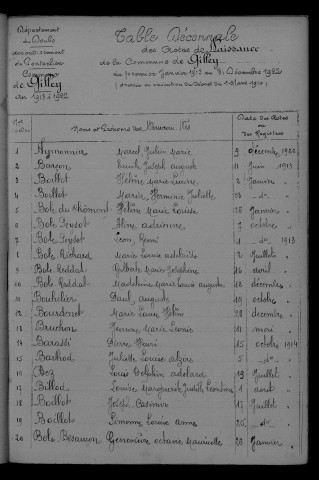 Département
du Doubs
Arrondissement
de Pontarlier
Commune
de Gilley
Table Décennale
des Actes de Naissance
de la Commune de Gilley
du premier Janvier 1913 au 31 Décembre 1922
Noms et Prénoms des Nouveaux Nés
Date des Actes
ou
des Registres
1 Aymonnier Marcel Julien Marie 9 décembre 1920
2 Barçon Joseph auguste 11 Juin 1913
3 Boillot Hélène Marie Louise 2 Janvier "
4 Boillot Marie Juliette
5 Bole du Chomont Hélène Marie Louise 26 Janvier "
6 Bole Feysot Aline adrienne 7 octobre "
7 Bole Feysot Léon 1 do 1913
8 Bole Richard Marie Louise adelaïde 2 Juillet "
9 Bole Reddat Marie Joséphine 16 avril "
10 Bole Reddat Madeleine Marie Louise 18 décembre "
11 Bouhelier Paul auguste 19 octobre "
12 Bourdenet Marie Louise Hélène 28 décembre "
13 Bruchon Jeanne Marie Léonie 11 mai "
14 Barassi Pierre Henri 15 octobre 1914
15 Barthod Juliette Louise 5 do "
16 Bez Louis Delphin adelard 19 Juillet "
17 Billod Louise Marguerite Judith 1 août "
18 Boillot Joseph Casimir 17 Juillet "
19 Boillot Simonne Louise anna 25 do "
20 Bole Besançon Geneviève octavie Marcelle 26 Janvier "